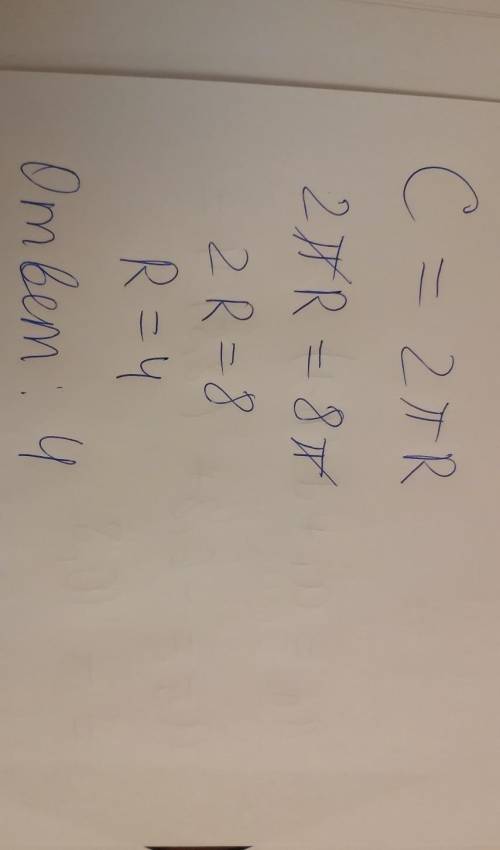 C = 2πR
2πR = 8π
2R = 8
R = 4
Ответ: 4